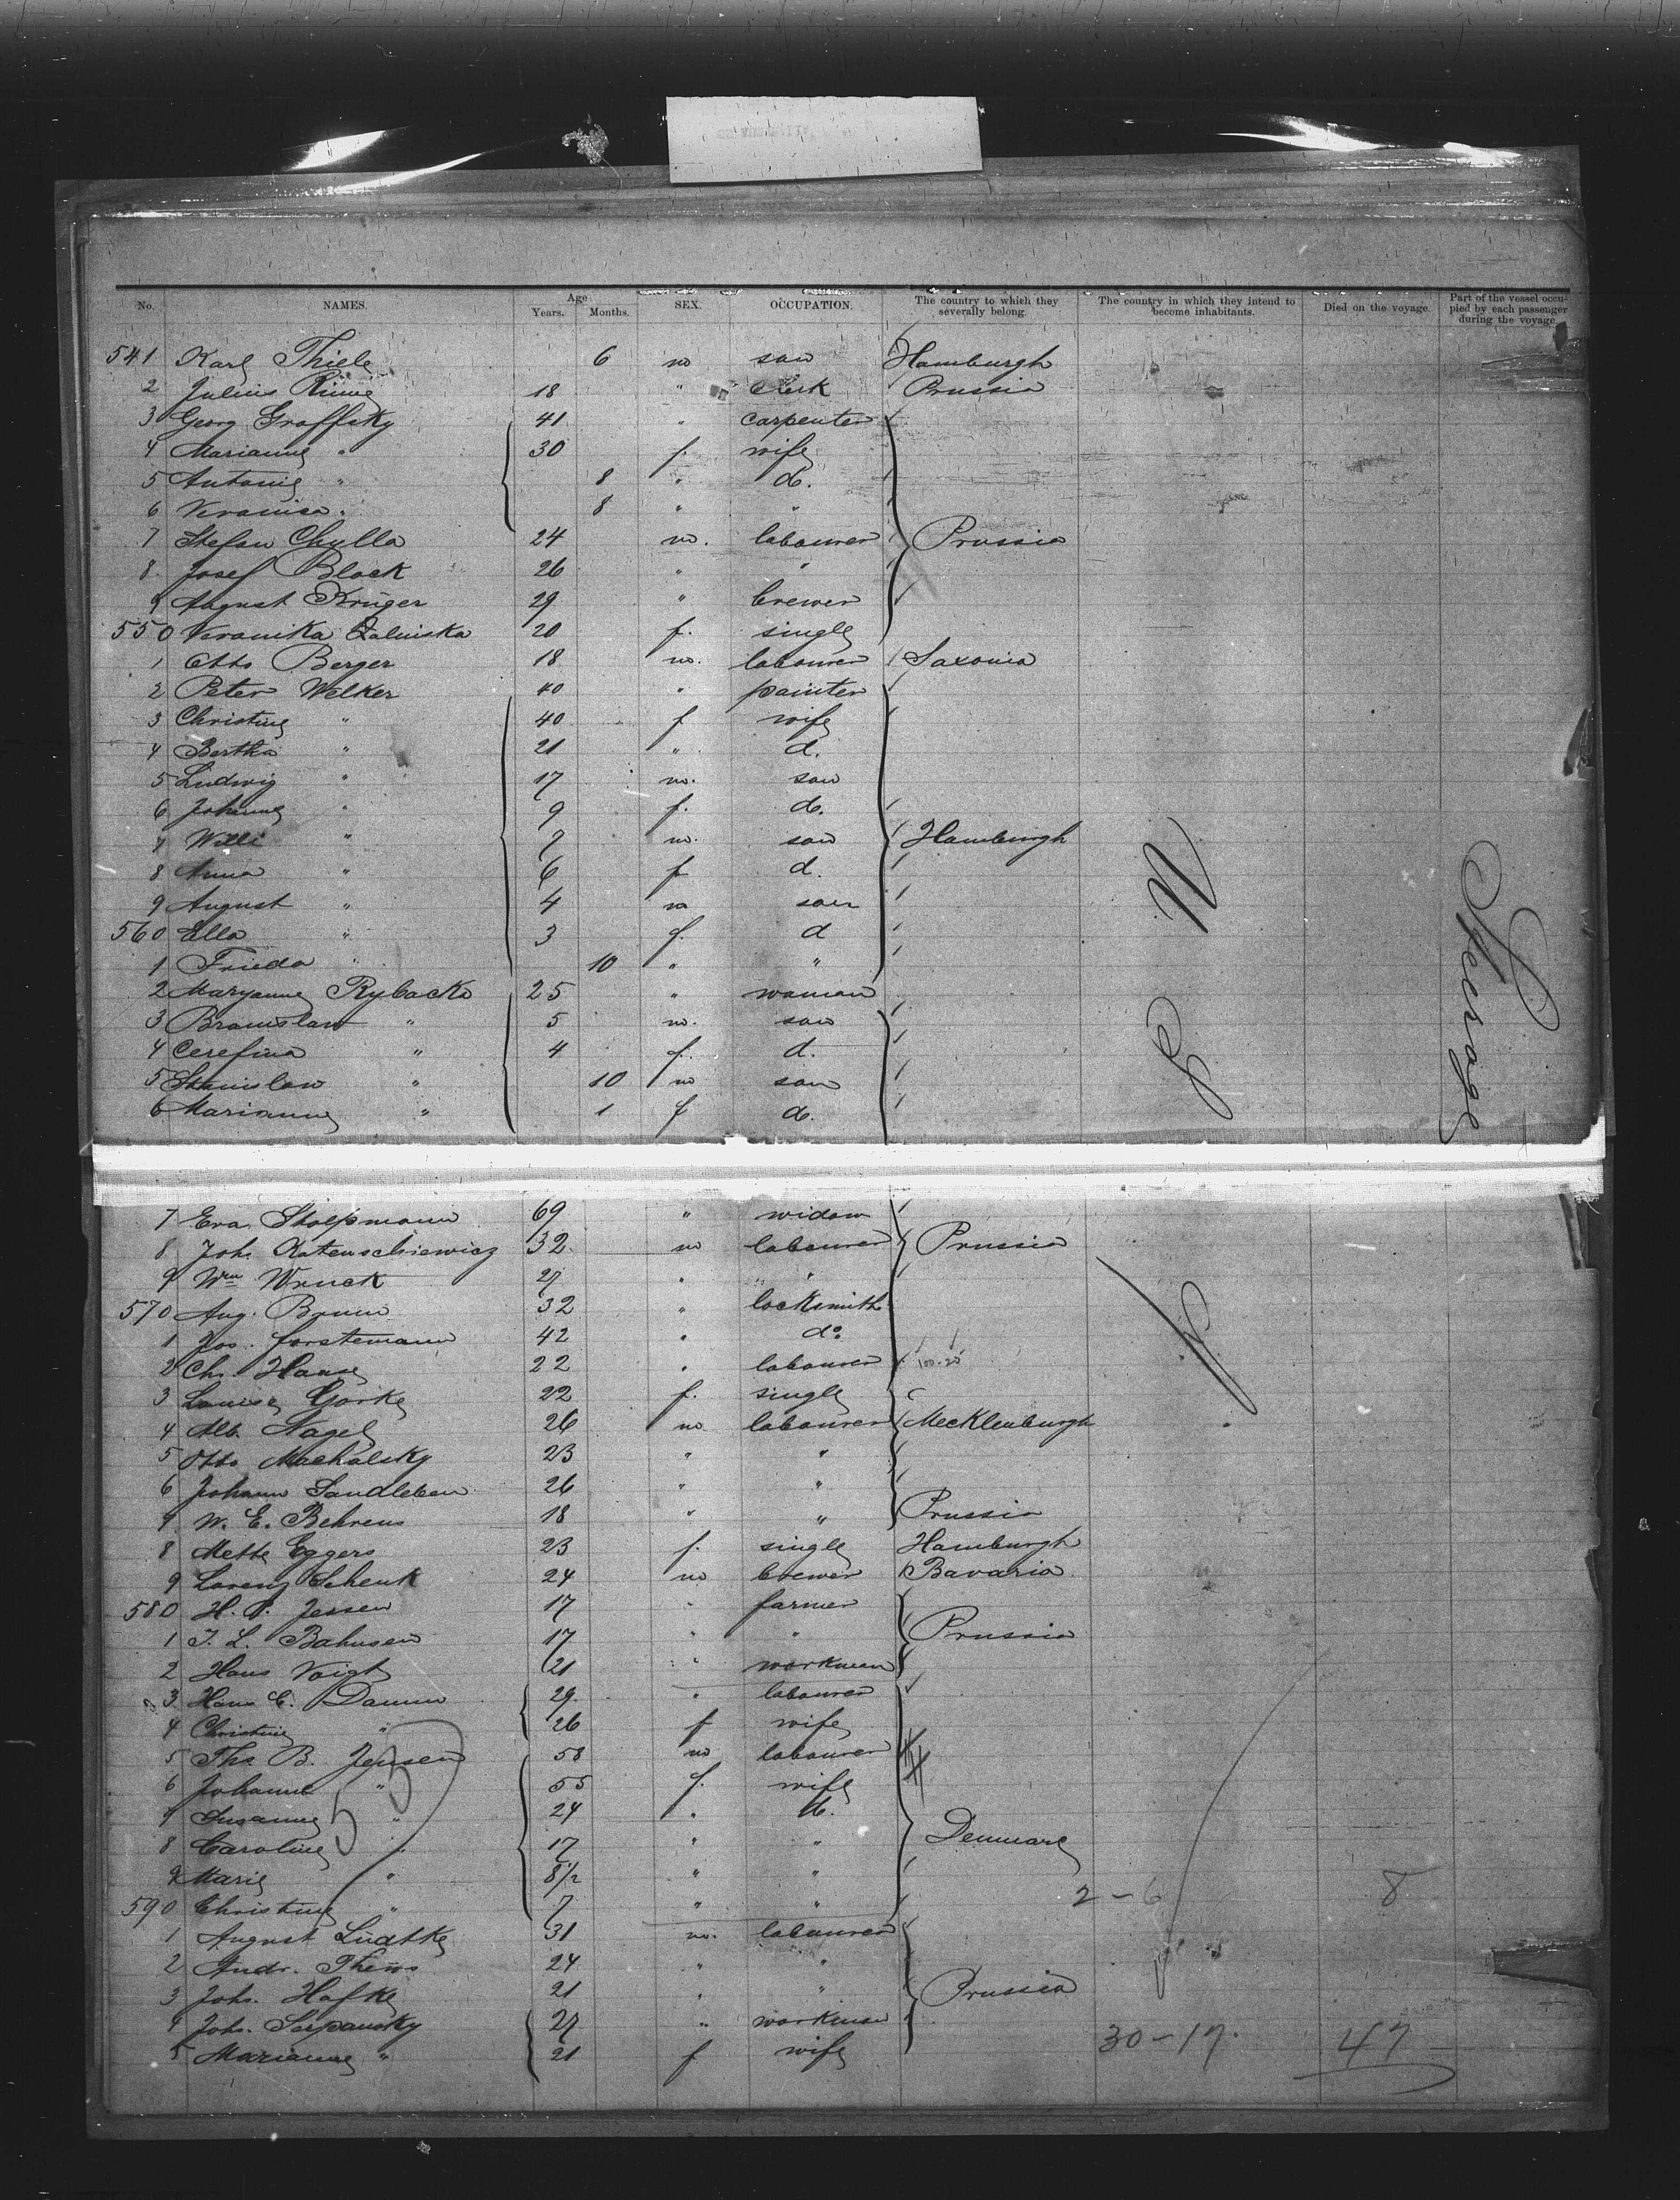 No. NAMES. Age Years. Months. SEX. OCCUPATION. The country to which they severally belong. The country in which they intend to become inhabitants. Died on the voyage. Part of the vessel occupied by each passenger during the voyage.
541 Karl Thiele 6 m son Hamburgh
2 Julius 18 " Clerk Prussia
3 Georg Groffsky 41 " carpenter
4 Marianne " 30 f. wife
5 Antonie " 8 " d.
6 Veronica " 8 " "
7 Stefan Chylla 24 m. labourer Prussia
8 Josef Block 26 " "
9 August Krüger 29 " brewer
550 Veronika Zaluiska 20 f. single
1 Otto Berger 18 m. labourer Saxonia
2 Peter Welker 40 " painter
3 Christine " 40 f wife
4 Bertha " 21 " d.
5 Ludwig " 17 m. son
6 Johanne " 9 f. d.
7 Willi " 7 m. son Hamburgh
8 Anna " 6 f d.
9 August " 4 m son
560 Ella " 3 f. d
1 Frieda " 10 " "
2 Maryanne Rybacka 25 " woman
3 Bronislaw " 5 m. son
4 Cerefina " 4 f. d.
5 Stanislaw " 10 m son
6 Marianne " 1 f d.
Steerage
7 Eva Stolpmann 69 " widow
8 Joh. Katenschiewicz 32 m labourer Prussia
9 Wm Wruck 27 " "
570 Aug. Brunn 32 " locksmith
1 Jos. Forstemann 42 " do
2 Chr. Haase 22 " labourer 100-20
3 Louise Gorke 22 f. single
4 Alb. Nagel 26 m. labourer Mecklenburgh
5 Otto Machalsky 23 " "
6 Johann Sandleben 26 " "
7 W. E. Behrens 18 " " Prussia
8 Mette Eggers 23 f. single Hamburgh
9 Lorenz Schenk 24 m brewer Bavaria
580 H. P. Jessen 17 " farmer
1 J. L. Bahnsen 17 " " Prussia
2 Hans Voigt 21 " workman
3 Hans C. Damm 29. " labourer
4 Christine " 26 f wife
5 Ths. B. Jensen 58 m labourer
6 Johanne " 55 f. wife
7 Susanne " 24 " d.
8 Caroline " 17 " " Denmark
9 Marie " 8 1/2 " " 2-6 8
590 Christine " 7 " "
1 August Lüdtke 31 m. labourer
2 Andr. Thews 24 " "
3 Johs. Hafke 21 " " Prussia
4 Johs. Serpansky 27 " workman 30-17. 47
5 Marianne " 21 f wife